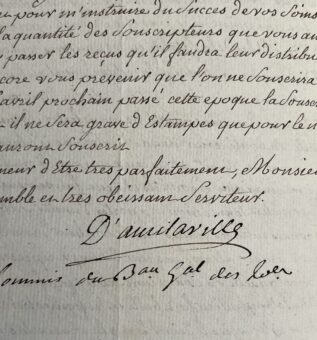 pour m'instruire du Succes de vos Soins
la quantité des Souscripteurs que vous au
passer les reçus qu'il faudra leur distribu
core vous prévenir que l'on ne Souscrira
avril prochain passé cette epoque la Sous
il ne Sera gravé d'Estampes que pour le n
auront Souscrit
neur d'Etre tres parfaitement, Monsie
mble et tres obeissant Serviteur.
D'amilaville
Commis du Bau Gal des